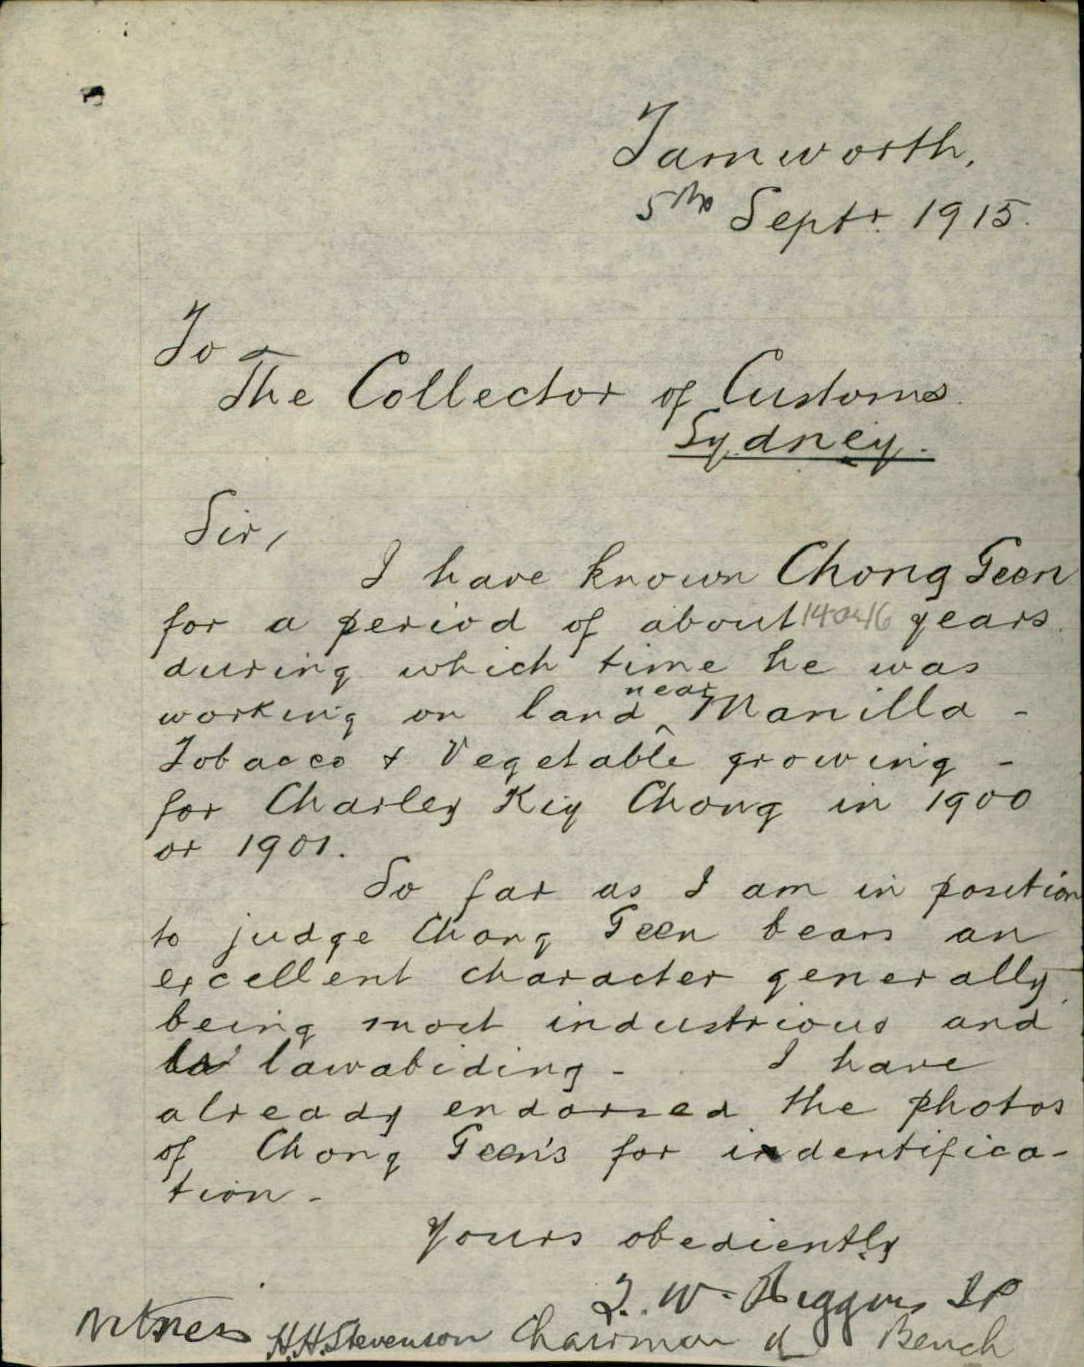 Tamworth,
5th Septr. 1915.
To
The Collector of Customs
Sydney.
Sir,
I have known Chong Geen
for a period of about 14 or 16 years
during which time he was
working on land near Manilla -
Tobacco & Vegetable growing -
for Charley Kiy Chong in 1900
or 1901.
So far as I am in position
to judge Chong Geen bears an
excellent character generally
being most industrious and
lawabiding - I have
already endorsed the photos
of Chong Geen's for indentifica-
tion -
Yours obediently
W.
Witness H.H. Stevenson Chairman of Bench